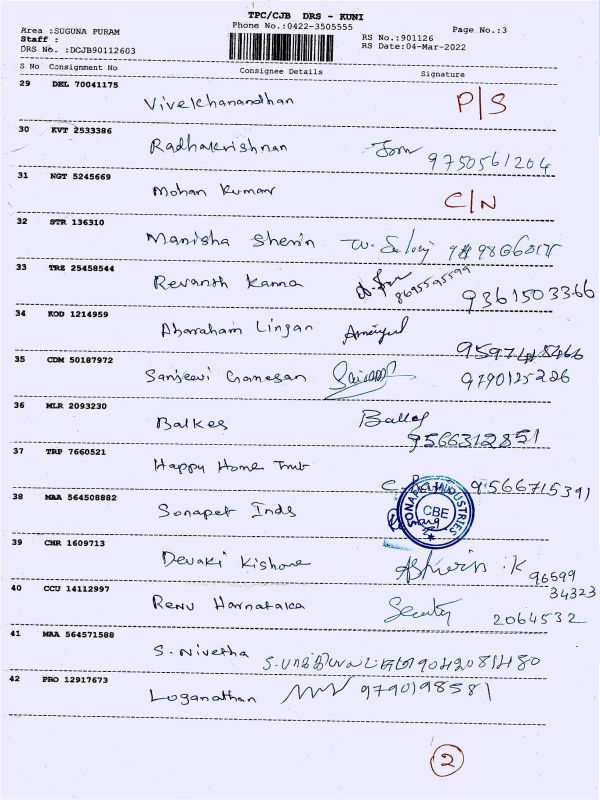 TPC/CJB DRS - KUNI
Area :SUGUNA PURAM Phone No.:0422-3505555 Page No.:3
Staff : RS No.:901126
DRS No. :DCJB90112603 RS Date:04-Mar-2022
S No Consignment No Consignee Details Signature
29 DEL 70041175
Vivekchanandhan P/S
30 KVT 2533386
Radhakrishnan 9750561204
31 NGT 5245669
Mohan Kumar C/N
32 STR 136310
Manisha Sherin
33 TRE 25458544
Revanth Kanna 8695595599 9361503366
34 KOD 1214959
Abaraham Lingan
35 CDM 50187972
Sanjeevi Ganesan 9790125226
36 MLR 2093230
Balkes 9566312851
37 TRP 7660521
Happy Home 9566715391
38 MAA 564508882
Sonapet Inds SONAPET INDUSTRIES CBE
39 CNR 1609713
Devaki Kishore 96599
34323
40 CCU 14112997
Renu Harnataka Security 2064532
41 MAA 564571588
S. Nivetha 9042081480
42 PRO 12917673
Loganathan 9790198581
2